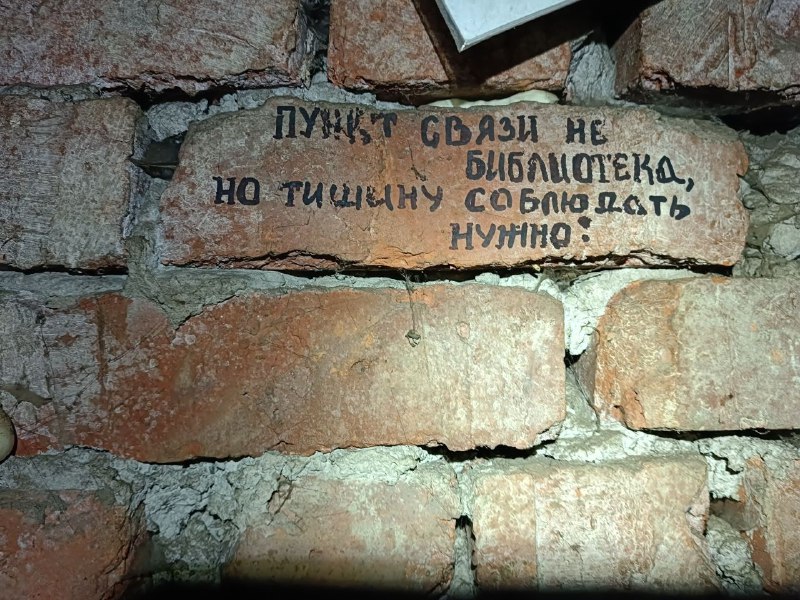 ПУНКТ СВЯЗИ НЕ
БИБЛИОТЕКА,
НО ТИШИНУ СОБЛЮДАТЬ
НУЖНО!